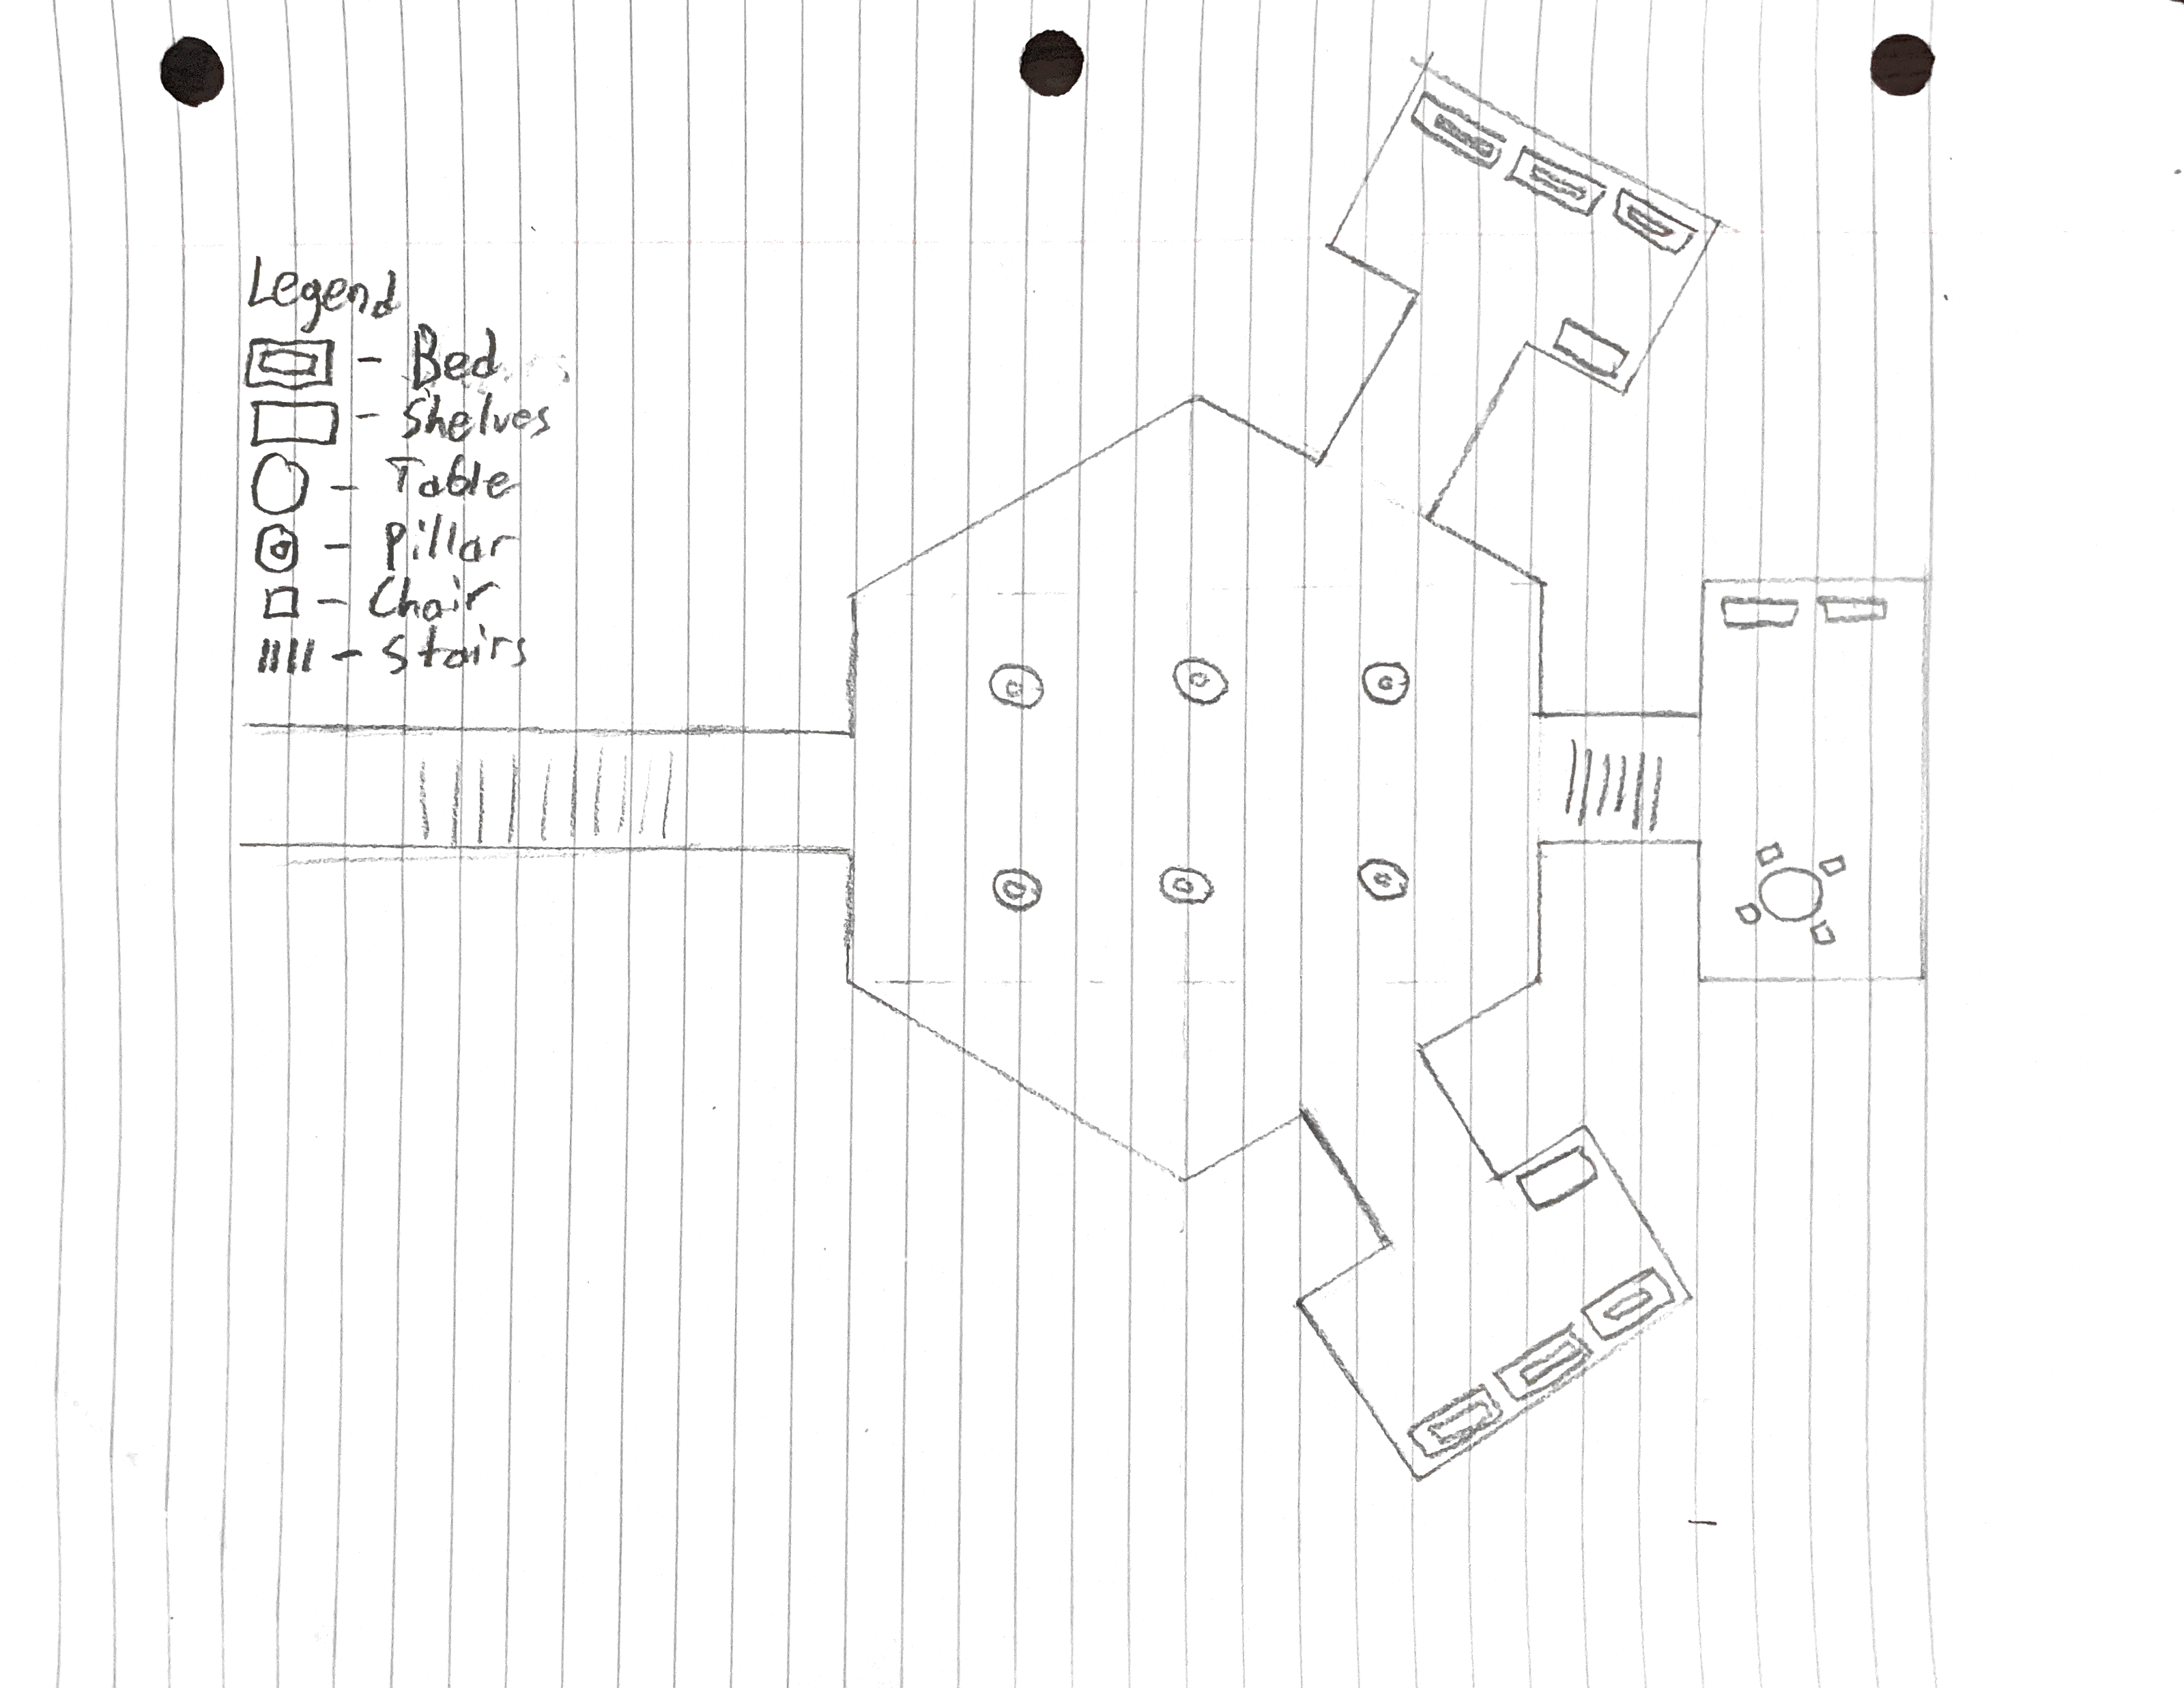 Legend
- Bed
- Shelves
- Table
- Pillar
- Chair
- Stairs